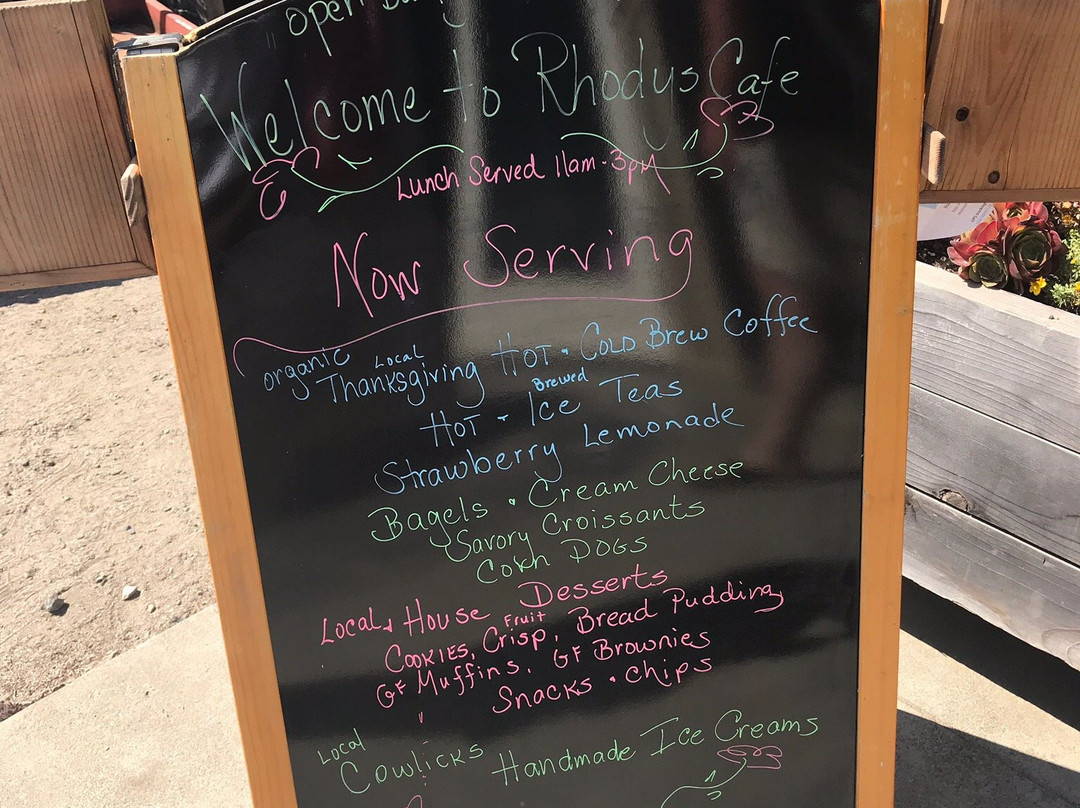 open
Welcome to Rhodys Cafe
Lunch Served 11am - 3pm
Now Serving
organic Local Thanksgiving Hot • Cold Brew Coffee
Hot - Ice Brewed Teas
Strawberry Lemonade
Bagels • Cream Cheese
Savory Croissants
Corn Dogs
Local & House Desserts
Cookies, Fruit Crisp, Bread Pudding
GF Muffins, GF Brownies
Snacks • Chips
Local Cowlicks Handmade Ice Creams